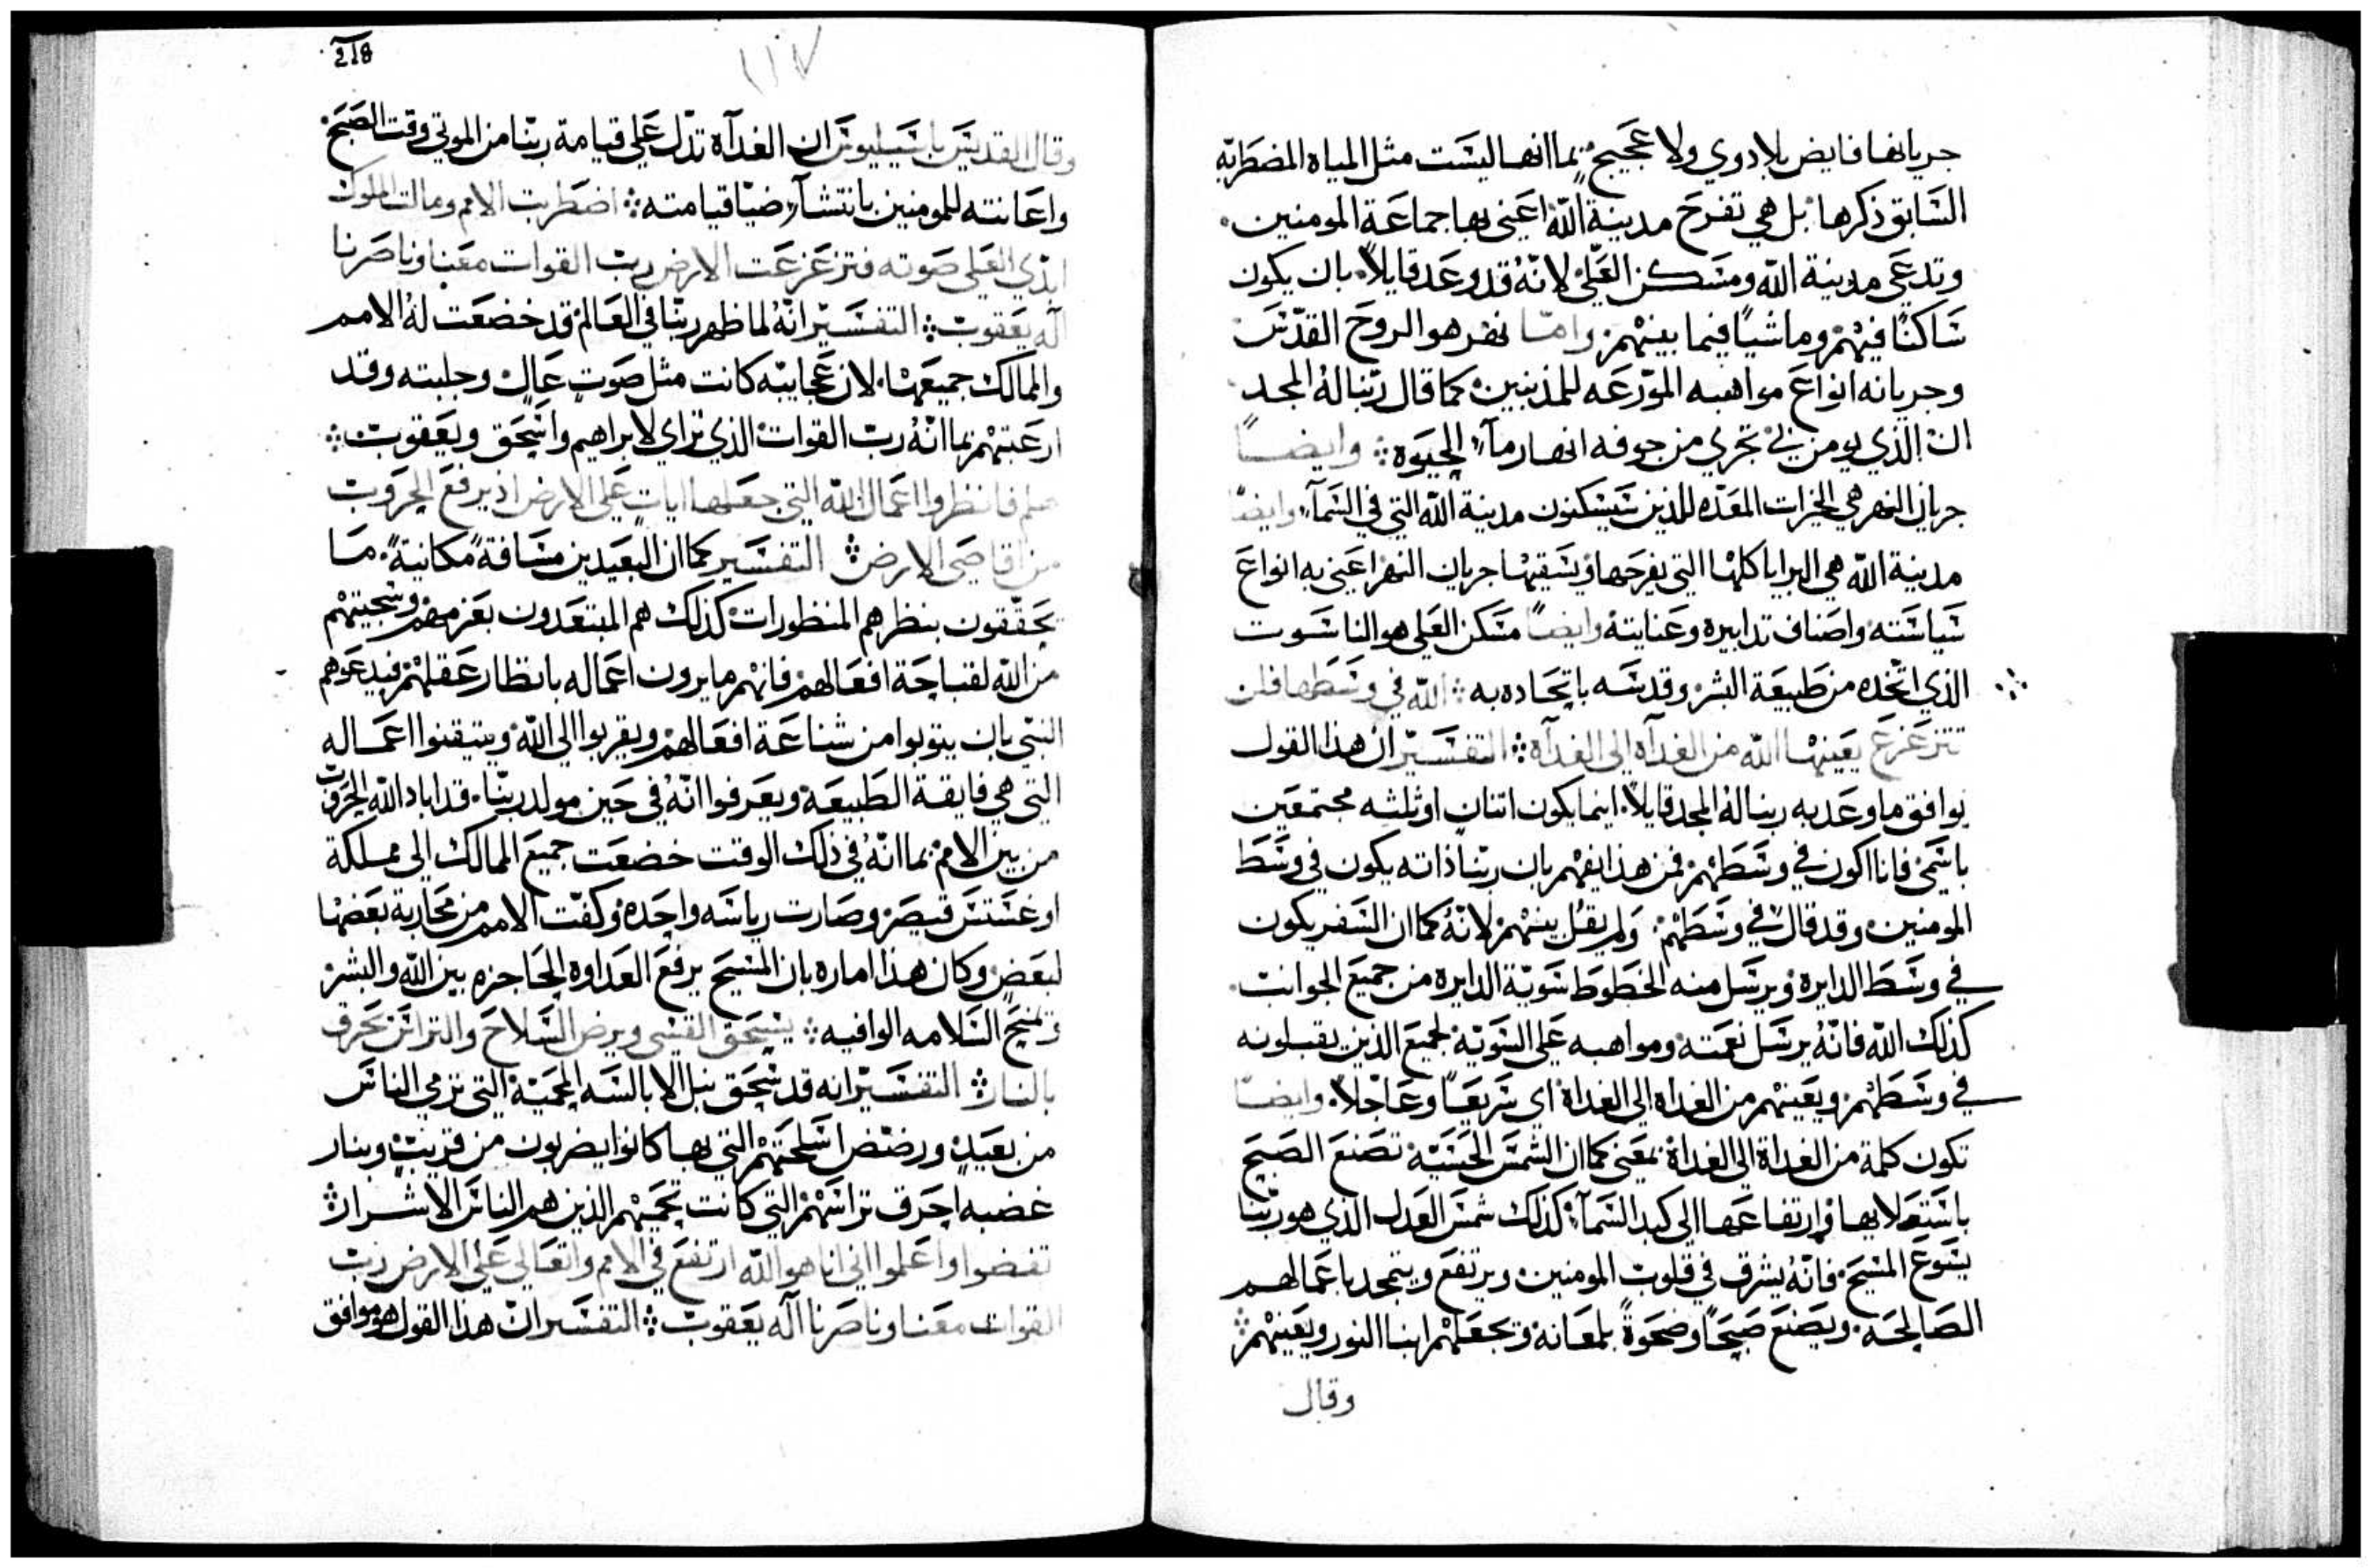 جريانها فايض بلا دوي ولا عجيج. بما انها ليست مثل المياه المضطربه
السابق ذكرها بل هي تفرح مدينة الله اعني بها جماعة المومنين.
وتدعي مدينة الله ومسكن العلي لانه قد وعد قايلاً. بان يكون
ساكنًا فيهم وماشيًا فيما بينهم. واما نهر هو الروح القدس
وجريانه انواع مواهبه الموزعه للمذنبين كما قال ربنا له المجد
ان الذي يومن بي تجري من جوفه انهار مآء الحيوة ⁘ وايضًا
جريان النهر هي الخيرات المعده للذين سيسكنون مدينة الله التي في السمآء وايضًا
مدينة الله هي البرايا كلها التي يفرحها ويسقيها جريان النهر اعني به انواع
سياسته واصناف تدابيره وعنايته وايضًا مسكن العلي هو الناسوت
الذي اتخده من طبيعة البشر وقدسه باتحاده به ⁘ الله في وسطها فلن
تتزعزع يعينها الله من الغدآة الى الغدآة ⁘ التفسير ان هذا القول
يوافق ما وعد به ربنا له المجد قايلاً. اينما يكون اتنان او ثلثه مجتمعين
باسمي فانا اكون في وسطهم فمن هذا يفهم بان ربنا ذاته يكون في وسط
المومنين وقد قال في وسطهم. ولم يقل بينهم لانه كما ان السفر يكون
في وسط الدايره ويرسل منه الخطوط بسوية الدايره من جميع الجوانب.
كذلك الله فانه يرسل نعمته ومواهبه على السويه لجميع الذين يقبلونه
في وسطهم ويعينهم من الغداة الى الغداة اي سريعًا وعاجلاً. وايضًا
تكون كلمة من الغداة الى الغداة بمعنى كما ان الشمس الحسيه تصنع الصبح
باستعلايها وارتفاعها الى كبد السمآء كذلك شمس العدل الذي هو ربنا
يسوع المسيح فانه يشرق في قلوب المومنين ويرتفع ويتمجد باعمالهم
الصالحه. ويصنع صبحًا وضحوةً بلمعانه وتجعلهم ابنا النور ويعينهم ⁘
وقال
218
١١٧
وقال القديس باسيليوس ان الغدآه تدل على قيامة ربنا من الموتي وقت الصبح
واعانته للمومنين بانتشآر ضيا قيامته ⁘ اضطربت الامم ومالت الملوك
ابدي العلى صوته فتزعزعت الارض رب القوات معنا وناصرنا
اله يعقوب ⁘ التفسير انه لما ظهر ربنا في العالم قد خضعت له الامم
والممالك جميعها. لان عجايبه كانت مثل صوت عالٍ وجلبته وقد
ارعبتهم بما انه رب القوات الذي تراي لابراهيم واسحق ويعقوب ⁘
هلم فانظروا اعمال الله التي جعلها ايات على الارض اذ يرفع الحروب
من اقاصي الارض ⁘ التفسير كما ان البعيدين مسافةً مكانيةً. ما
يحققون بنظرهم المنظورات كذلك هم المبتعدون بعزمهم وسجيتهم
من الله لقباحة افعالهم فانهم ما يرون اعماله بانظار عقلهم فيدعوهم
النبي بان يتوبوا من شناعة افعالهم ويقربوا الى الله ويتيقنوا اعماله
التي هي فايقة الطبيعة ويعرفوا انه في حين مولد ربنا. قد اباد الله الحروب
من بين الامم بما انه في ذلك الوقت خضعت جميع الممالك الى مملكة
اوغستس قيصر وصارت رياسه واحده وكفت الامم من محاربة بعضها
لبعض وكان هذا اماره بان المسيح يرفع العداوة الحاجزه بين الله والبشر
ويمنح السلامه الوافيه ⁘ يسحق القسي ويرض السلاح والتراس يحرق
بالنار ⁘ التفسير انه قد سحق نبل الابالسه المحميه التي ترمي الناس
من بعيد ورضض اسلحتهم التي بها كانوا يضربون من قريب وبنار
غضبه احرق تراسهم التي كانت تحميهم الذين هم الناس الاشرار ⁘
تفضوا واعلموا اني انا هو الله ارتفع في الامم واتعالي على الارض رب
القوات معنا وناصرنا اله يعقوب ⁘ التفسير ان هذا القول هو موافق